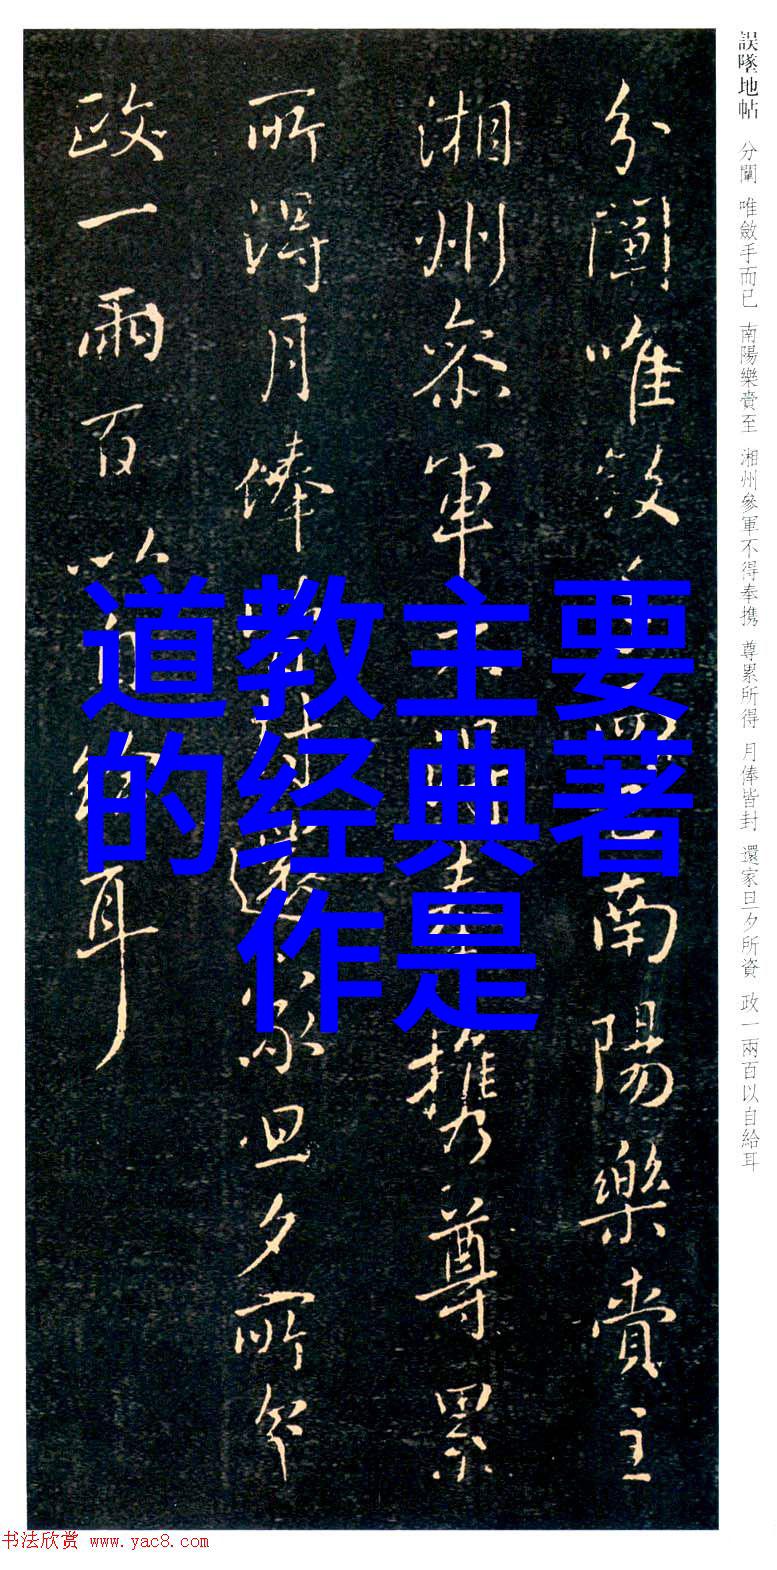 誤墜地帖 分闡 唯斂手而已 南陽樂賁至 湘州參軍不得奉携 尊累所得 月俸皆封 還家旦夕所資 政一兩百以自給耳
分闡唯斂手而已南陽樂賁至
湘州參軍不得奉携尊累
所得月俸皆封還家旦夕所資
政一兩百以自給耳
道教主要
的经典著
作是
书法欣赏 www.yac8.com